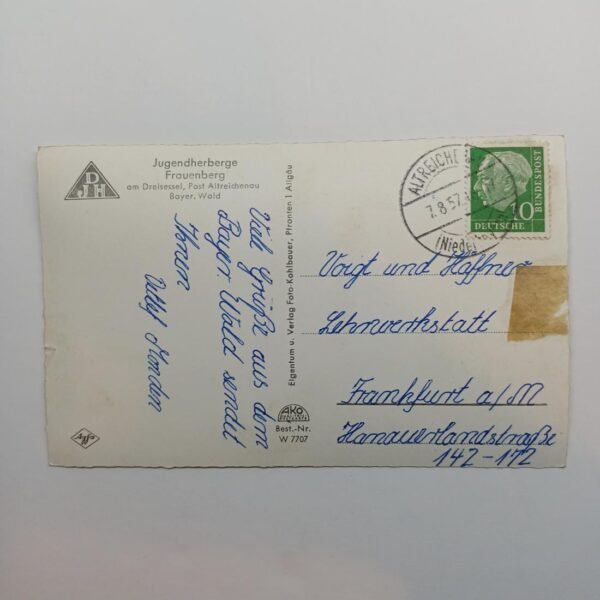 DJH
Jugendherberge
Frauenberg
am Dreisessel, Post Altreichenau
Bayer. Wald
Viele Grüße aus dem
Bayer Wald sendet
Ihnen
Detlef
Eigentum u. Verlag Foto-Kohlbauer, Pfronten i Allgäu
AKO
Best.-Nr.
W 7707
Agfa
ALTREICHE
7.8.57
(Nieder
10
DEUTSCHE
BUNDESPOST
Voigt und Haffner
Lehrwerkstatt
Frankfurt a/M
Hanauerlandstraße
142-172